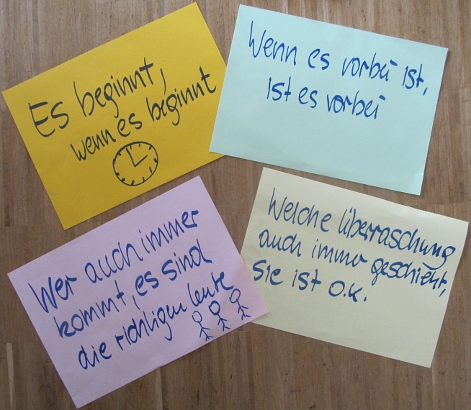 Es beginnt,
wenn es beginnt
Wenn es vorbei ist,
ist es vorbei
Wer auch immer
kommt, es sind
die richtigen Leute
Welche Überraschung
auch immer geschieht,
sie ist o.k.